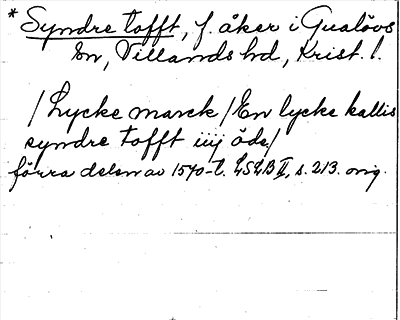 * Syndre tofft, f. åker i Gualövs
sn, Villands hd, Krist. l.
/Lycke marck/En lycke kallis
syndre tofft iiij öds/
förra delen av 1570-t. LSLB II, s. 213. orig.